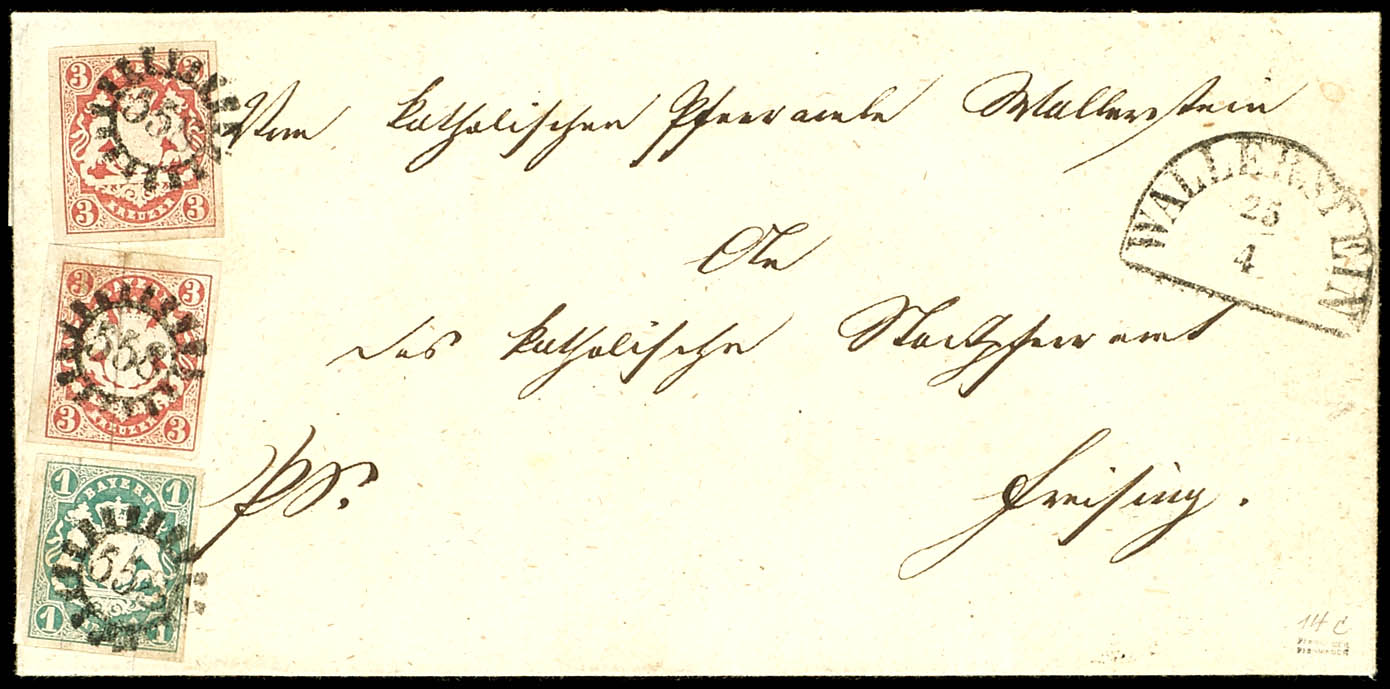 3 3
BAYERN
KREUZER
3 3
558
Vom katholischen Pfarramte Wallerstein
WALLERSTEIN
25
4
An
3 3
BAYERN
KREUZER
3 3
558
das katholische Stadtpfarramt
1 1
BAYERN
1 1
55
Freising.
14 C